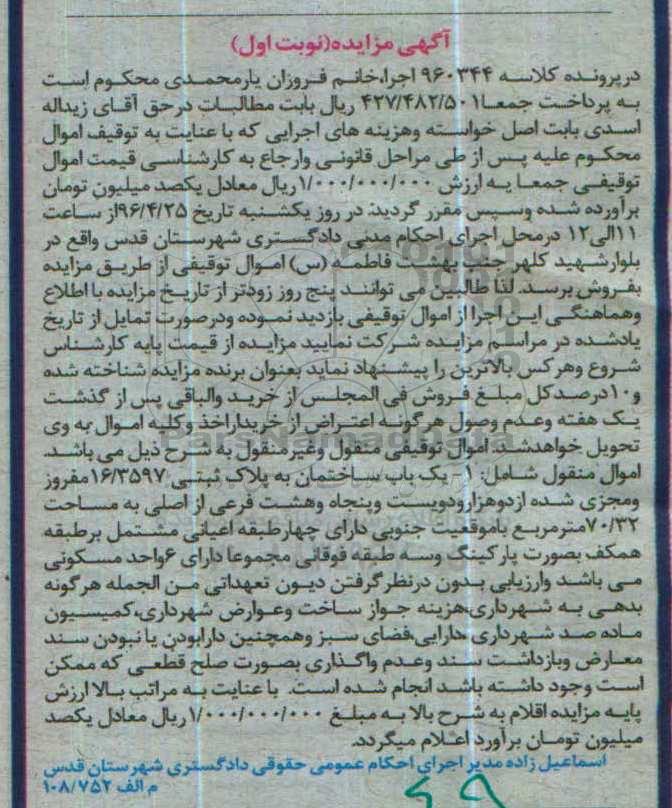 آگهی مزایده(نوبت اول)
درپرونده کلاسه ۹۶۰۳۴۴ اجرا،خانم فروزان یارمحمدی محکوم است
به پرداخت جمعا۴۲۷/۴۸۲/۵۰۱ ریال بابت مطالبات درحق آقای زیداله
اسدی بابت اصل خواسته وهزینه های اجرایی که با عنایت به توقیف اموال
محکوم علیه پس از طی مراحل قانونی وارجاع به کارشناسی قیمت اموال
توقیفی جمعا به ارزش ۱/۰۰۰/۰۰۰/۰۰۰ریال معادل یکصد میلیون تومان
برآورده شده وسپس مقرر گردید: در روز یکشنبه تاریخ ۹۶/۴/۲۵از ساعت
۱۱الی۱۲ درمحل اجرای احکام مدنی دادگستری شهرستان قدس واقع در
بلوارشهید کلهر جنب بهشت فاطمه (س) اموال توقیفی از طریق مزایده
بفروش برسد. لذا طالبین می توانند پنج روز زودتر از تاریخ مزایده با اطلاع
وهماهنگی این اجرا از اموال توقیفی بازدید نموده ودرصورت تمایل از تاریخ
یادشده در مراسم مزایده شرکت نمایید مزایده از قیمت پایه کارشناس
شروع وهرکس بالاترین را پیشنهاد نماید بعنوان برنده مزایده شناخته شده
و۱۰درصدکل مبلغ فروش فی المجلس از خرید والباقی پس از گذشت
یک هفته وعدم وصول هرگونه اعتراض از خریداراخذ وکلیه اموال به وی
تحویل خواهدشد. اموال توقیفی منقول وغیرمنقول به شرح ذیل می باشد.
اموال منقول شامل: ۱- یک باب ساختمان به پلاک ثبتی ۱۶/۳۵۹۷مفروز
ومجزی شده ازدوهزارودویست وپنجاه وهشت فرعی از اصلی به مساحت
۷۰/۳۲مترمربع باموقعیت جنوبی دارای چهارطبقه اعیانی مشتمل برطبقه
همکف بصورت پارکینگ وسه طبقه فوقانی مجموعا دارای ۶واحد مسکونی
می باشد وارزیابی بدون درنظرگرفتن دیون تعهداتی من الجمله هرگونه
بدهی به شهرداری،هزینه جواز ساخت وعوارض شهرداری،کمیسیون
ماده صد شهرداری ،دارایی،فضای سبز وهمچنین دارابودن یا نبودن سند
معارض وبازداشت سند وعدم واگذاری بصورت صلح قطعی که ممکن
است وجود داشته باشد انجام شده است. با عنایت به مراتب بالا ارزش
پایه مزایده اقلام به شرح بالا به مبلغ ۱/۰۰۰/۰۰۰/۰۰۰ریال معادل یکصد
میلیون تومان برآورد اعلام میگردد.
اسماعیل زاده مدیر اجرای احکام عمومی حقوقی دادگستری شهرستان قدس
م الف ۱۰۸/۷۵۲
۶۹
ParsNamaddata